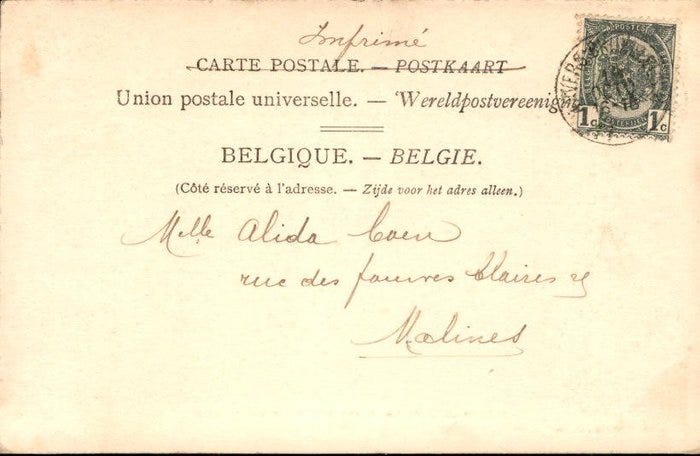 Imprimé
CARTE POSTALE. — POSTKAART
Union postale universelle. — Wereldpostvereeniging
BELGIQUE. — BELGIE.
(Côté réservé à l'adresse. — Zijde voor het adres alleen.)
Melle Alida Coen
rue des pauvres Claires 29
Malines
POSTES
1c 1c